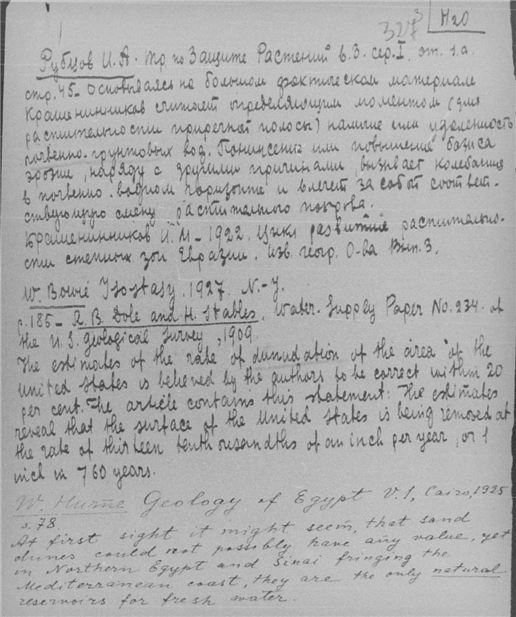 327 3 | H20
Рубцов И.А. Тр. по Защите Растений в.3. сер. I, от. 1.а.
стр. 45 - Основываясь на большом фактическом материале
Крашенинников считает определяющим моментом (для
растительности приречной полосы) наличие или удаленность
почвенно-грунтовых вод. Понижение или повышение базиса
эрозии, наряду с другими причинами, вызывает колебания
в почвенно-водном горизонте и влечет за собой соответ-
ствующую смену растительного покрова.
Крашенинников И.М - 1922. Цикл развития растительно-
сти степных зон Евразии. Изв. геогр. О-ва Вып. 3.
W. Bowie Isostasy, 1927. N.-Y.
p. 185 - R. B. Dole and H. Stables, Water. Supply Paper No. 234. of
the U. S. Geological Survey, 1909.
The estimates of the rate of denudation of the area of the
United States is believed by the authors to be correct within 20
per cent. The article contains this statement: The estimates
reveal that the surface of the United States is being removed at
the rate of thirteen tenthousandths of an inch per year, or 1
inch in 760 years.
W. Hume Geology of Egypt V. I, Cairo, 1925
s. 78.
At first sight it might seem, that sand
dunes could not possibly have any value, yet
in Northern Egypt and Sinai fringing the
Mediterranean coast, they are the only natural
reservoirs for fresh water.